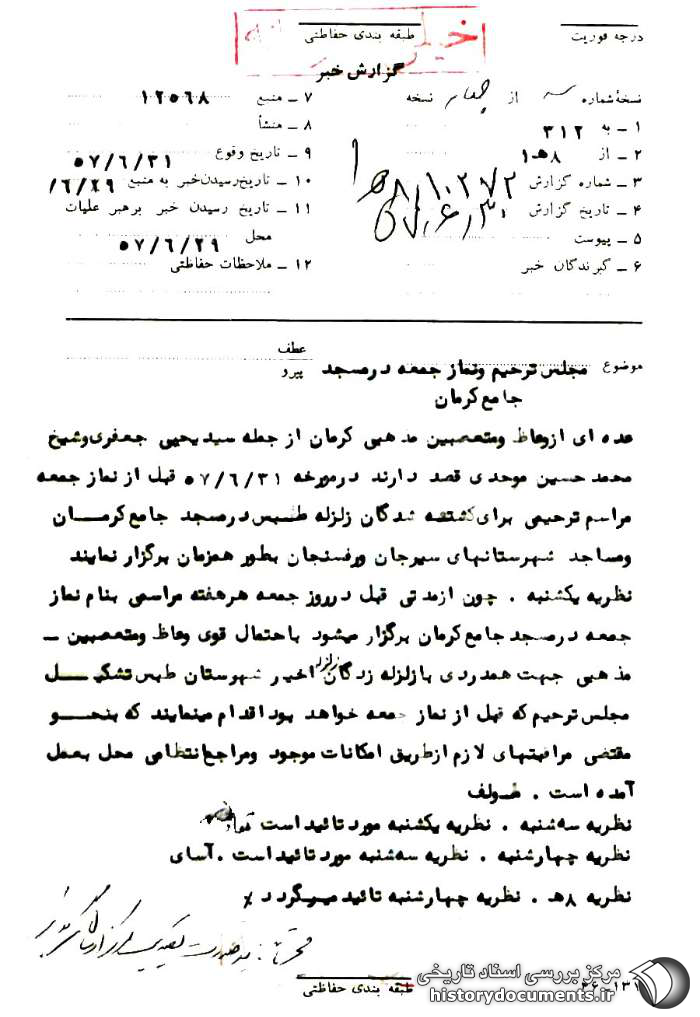 درجه فوریت
طبقه بندی حفاظتی
خیلی
گزارش خبر
نسخهٔ شماره سه از چهار نسخه
۱ ـ به ۳۱۲
۲ ـ از ۸هـ۱
۳ ـ شماره گزارش ۱۰۲۷۲/۸هـ۱
۴ ـ تاریخ گزارش ۵۷/۶/۳۰
۵ ـ پیوست
۶ ـ گیرندگان خبر
۷ ـ منبع ۱۲۵۶۸
۸ ـ منشأ
۹ ـ تاریخ وقوع ۵۷/۶/۳۱
۱۰ ـ تاریخ رسیدن خبر به منبع /۶/۲۹
۱۱ ـ تاریخ رسیدن خبر برهبر عملیات
محل ۵۷/۶/۲۹
۱۲ ـ ملاحظات حفاظتی
موضوع مجلس ترحیم ونماز جمعه درمسجد
جامع کرمان
عطف
پیرو
عده ای ازوعاظ ومتعصبین مذهبی کرمان از جمله سید یحیی جعفری وشیخ
محمد حسین موحدی قصد دارند درمورخه ۵۷/۶/۳۱ قبل از نماز جمعه
مراسم ترحیمی برای کشته شدگان زلزله طبس درمسجد جامع کرمـــان
ومساجد شهرستانهای سیرجان ورفسنجان بطور همزمان برگزار نمایند
نظریه یکشنبه . چون ازمدتی قبل درروز جمعه هرهفته مراسمی بنام نماز
جمعه درمسجد جامع کرمان برگزار میشود باحتمال قوی وعاظ ومتعصبین ـ
مذهبی جهت همدردی بازلزله زدگان زلزله اخیر شهرستان طبس تشکیـــل
مجلس ترحیم که قبل از نماز جمعه خواهد بود اقدام مینمایند که بنحـــو
مقتضی مراقبتهای لازم ازطریق امکانات موجود ومراجع انتظامی محل بعمل
آمده است . طـولف
نظریه سه شنبه . نظریه یکشنبه مورد تائید است
نظریه چهارشنبه . نظریه سه شنبه مورد تائید است . آسای
نظریه ۸هـ . نظریه چهارشنبه تائید میگردد ٪
طبقه بندی حفاظتی
مرکز بررسی اسناد تاریخی
historydocuments.ir